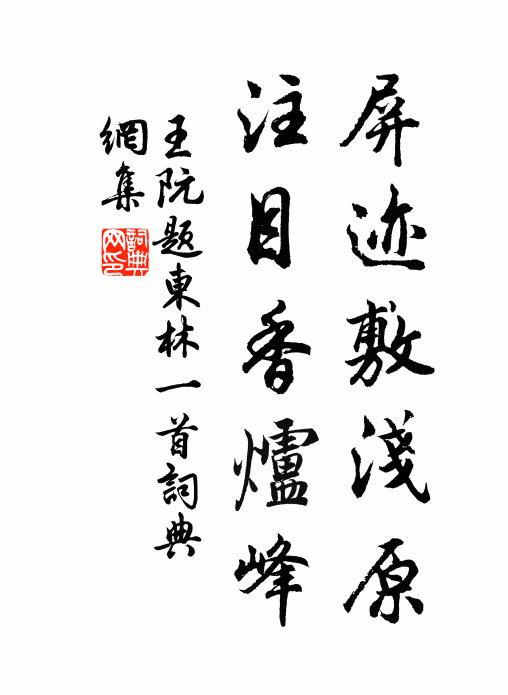 屏迹敷淺原
注目香爐峰
王阮題東林一首詞典
網集
詞典
网印